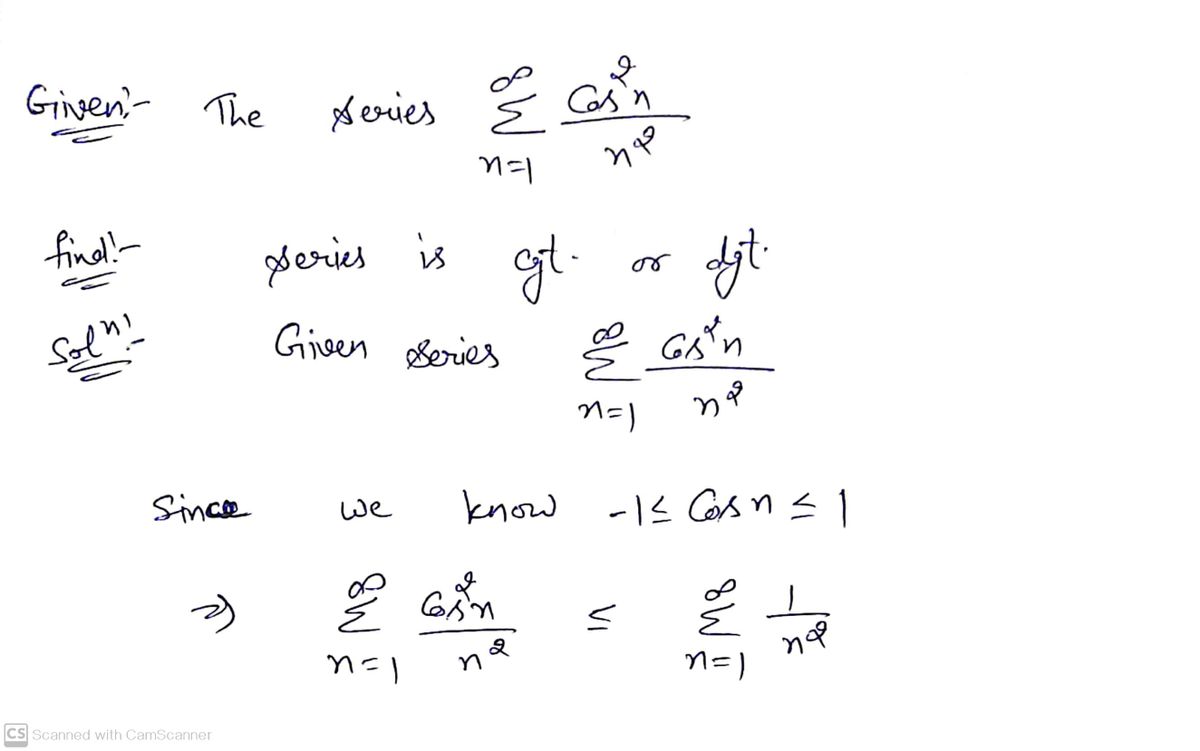 Given:- The series ∞ Σ n=1 Cos²n / n²
find:- series is cgt. or dgt.
Solⁿ:- Given series ∞ Σ n=1 Cos²n / n²
Since we know -1 ≤ Cos n ≤ 1
⇒ ∞ Σ n=1 Cos²n / n² ≤ ∞ Σ n=1 1 / n²
CS Scanned with CamScanner